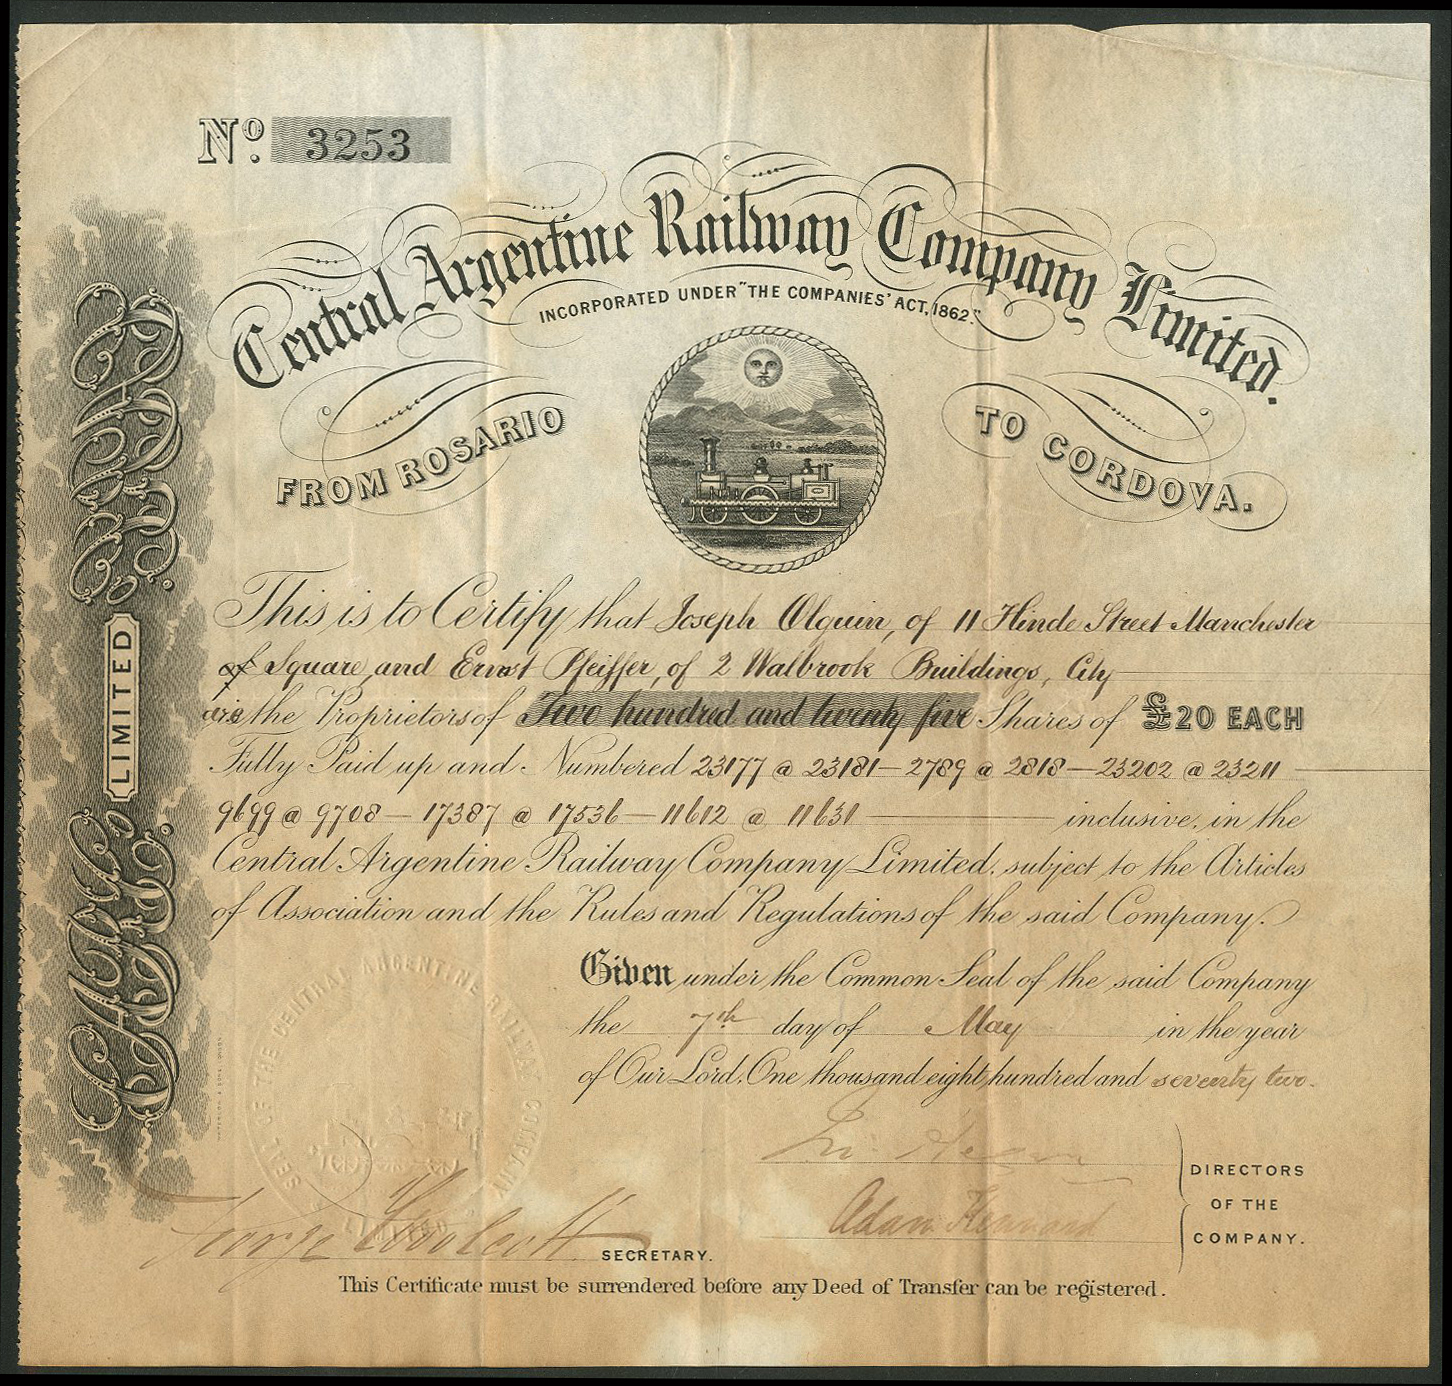 No. 3253
Central Argentine Railway Company Limited.
INCORPORATED UNDER "THE COMPANIES' ACT, 1862."
FROM ROSARIO TO CORDOVA.
LIMITED
This is to Certify that Joseph Olguin, of 11 Hinde Street Manchester
of Square, and Ernst Pfeiffer, of 2 Walbrook Buildings, City
are the Proprietors of Two hundred and twenty five Shares of £20 EACH
Fully Paid up and Numbered 23177 @ 23181 — 2789 @ 2818 — 23202 @ 23211
9699 @ 9708 — 17387 @ 17536 — 11612 @ 11631 — inclusive, in the
Central Argentine Railway Company Limited. subject to the Articles
of Association and the Rules and Regulations of the said Company.
Given under the Common Seal of the said Company
the 7th day of May in the year
of Our Lord, One thousand eight hundred and seventy two.
SEAL OF THE CENTRAL ARGENTINE RAILWAY COMPANY
LIMITED
DIRECTORS
OF THE
COMPANY.
Adam Kennard
George Woolcott SECRETARY.
This Certificate must be surrendered before any Deed of Transfer can be registered.